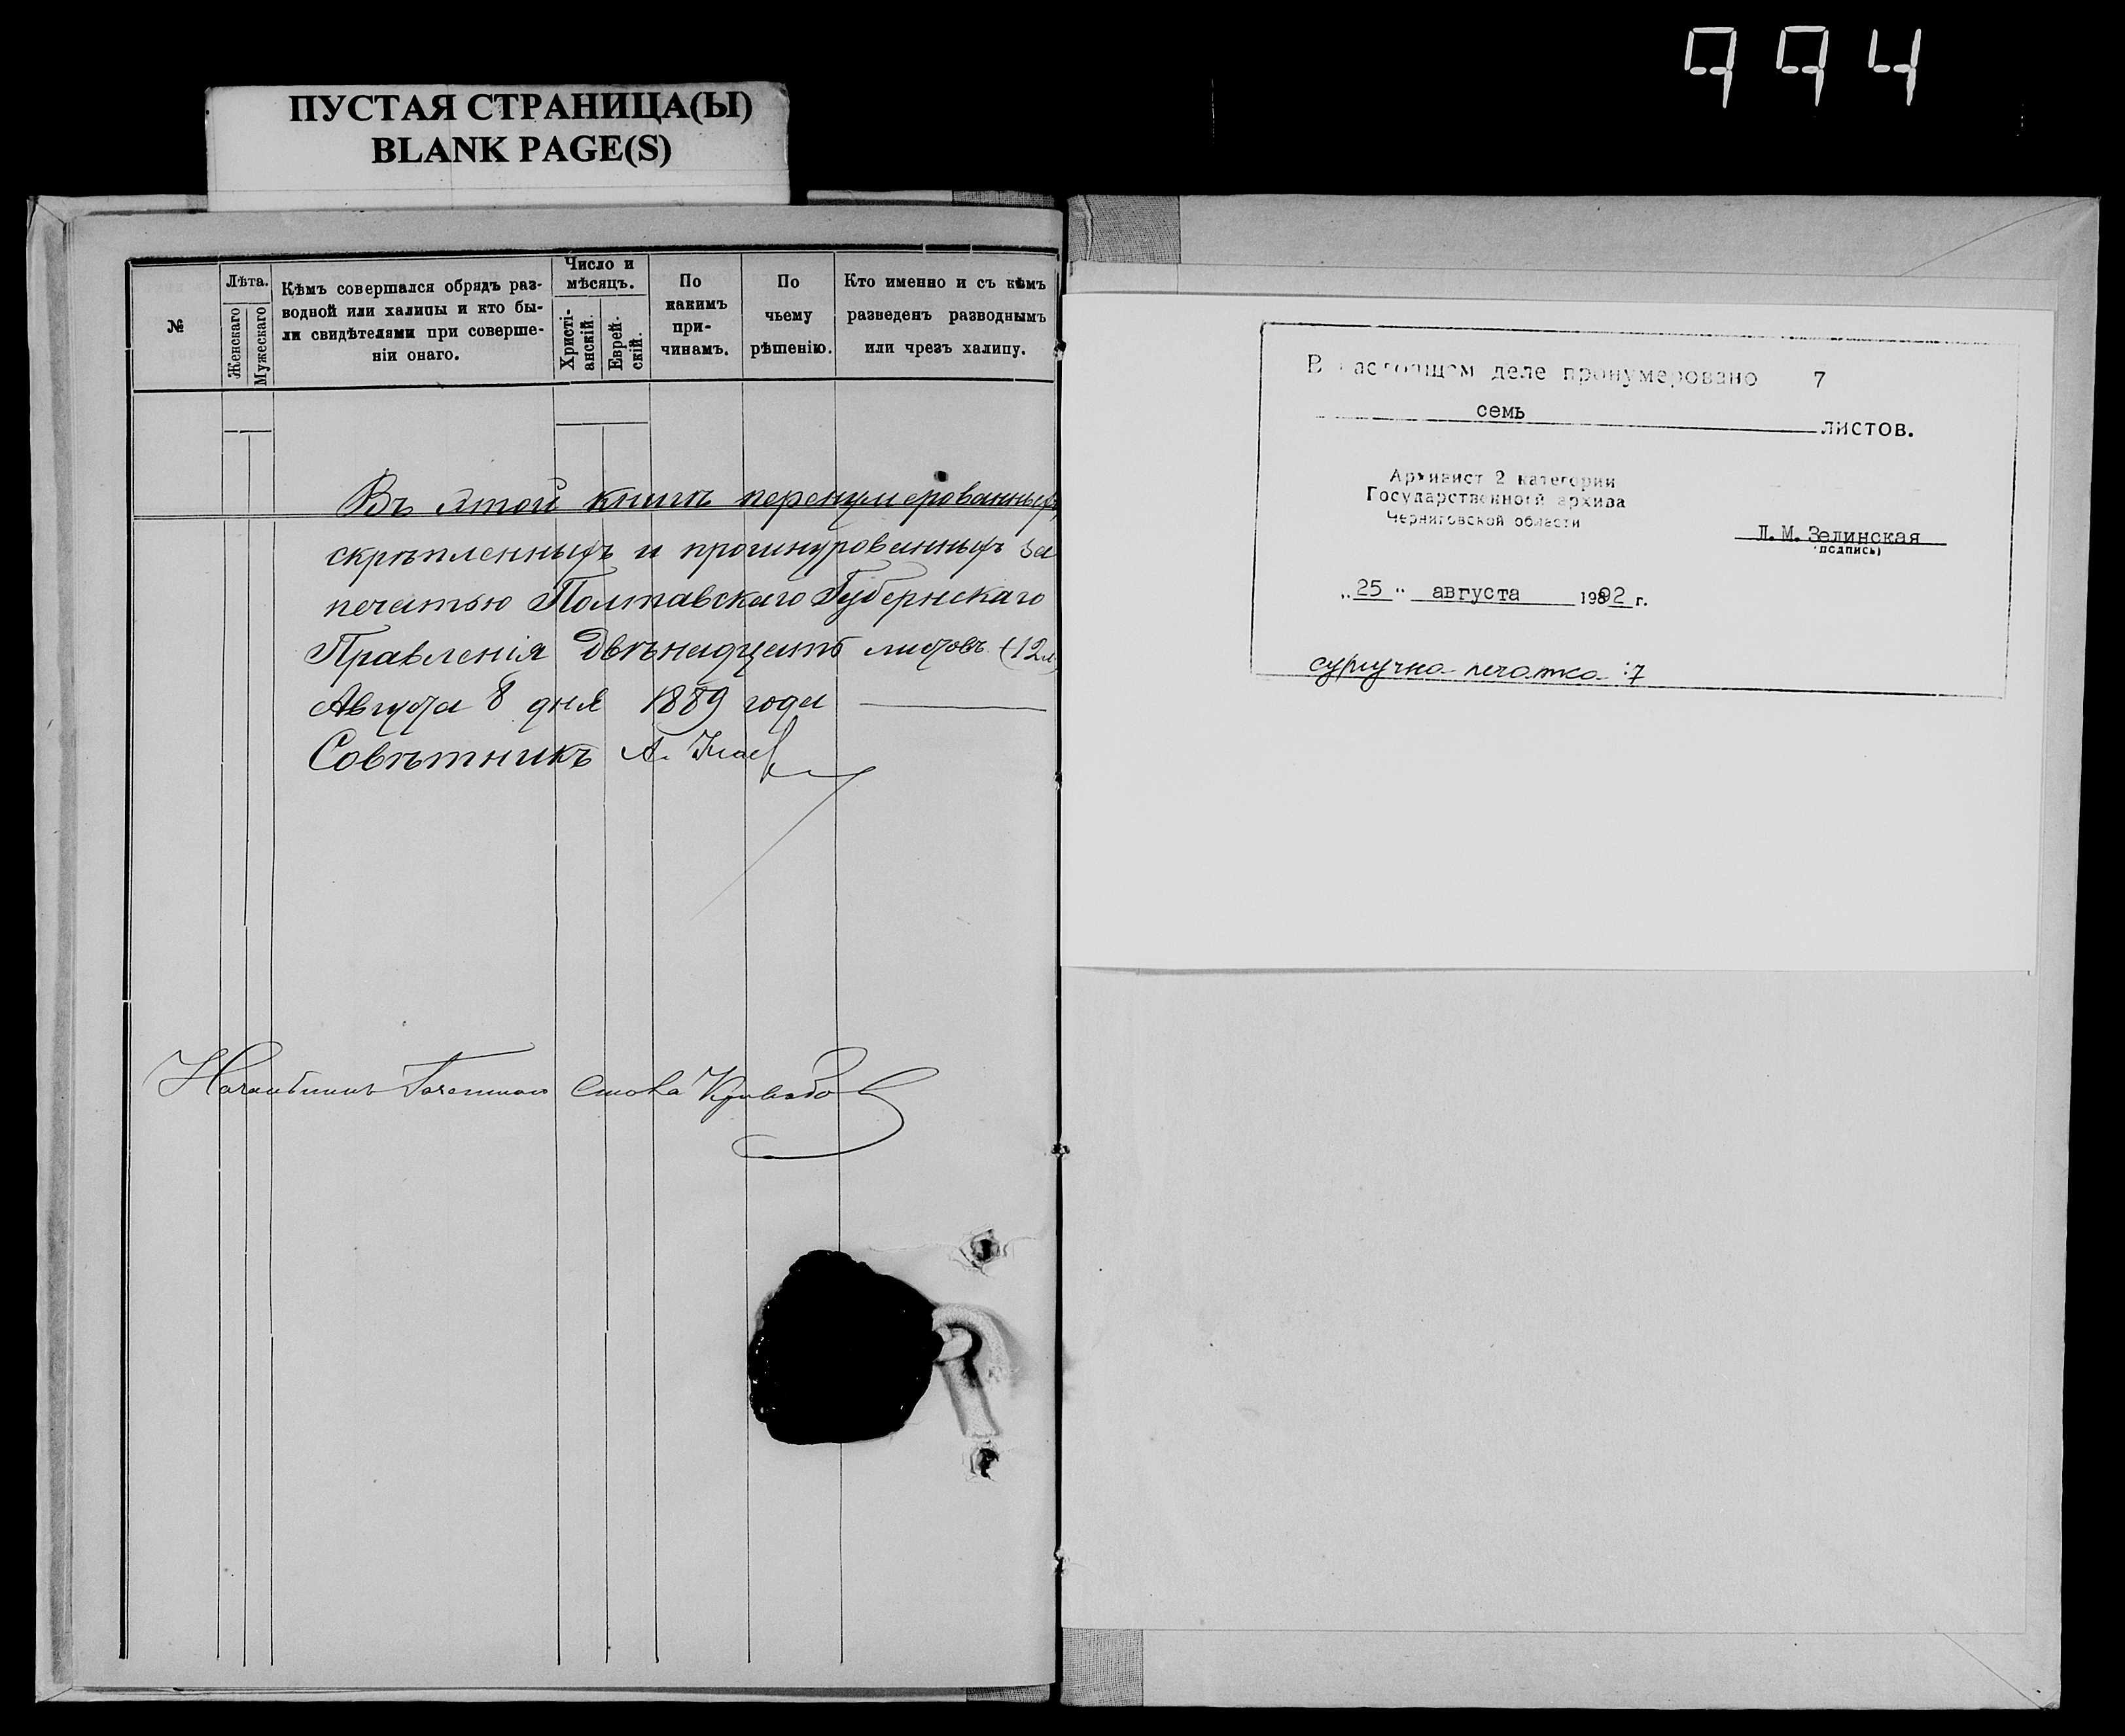 994
ПУСТАЯ СТРАНИЦА(Ы)
BLANK PAGE(S)
№
Лѣта.
Женскаго
Мужескаго
Кѣмъ совершался обрядъ раз-
водной или халицы и кто бы-
ли свидѣтелями при соверше-
ніи онаго.
Число и
мѣсяцъ.
Христі-
анскій.
Еврей-
скій.
По
какимъ
при-
чинамъ.
По
чьему
рѣшенію.
Кто именно и съ кѣмъ
разведенъ разводнымъ
или чрезъ халицу.
Въ этой книгѣ перенумерованныхъ,
скрѣпленныхъ и прошнурованныхъ за
печатью Полтавскаго Губернскаго
Правленія Двѣнадцать листовъ (12 л.
Августа 8 дня 1889 года
Совѣтникъ А.
В настоящем деле пронумеровано 7
семь
листов.
Архивист 2 категории
Государственной архива
Черниговской области
Л.М. Зелинская
(подпись)
„25" августа 1992 г.
сургучна печатка: 7